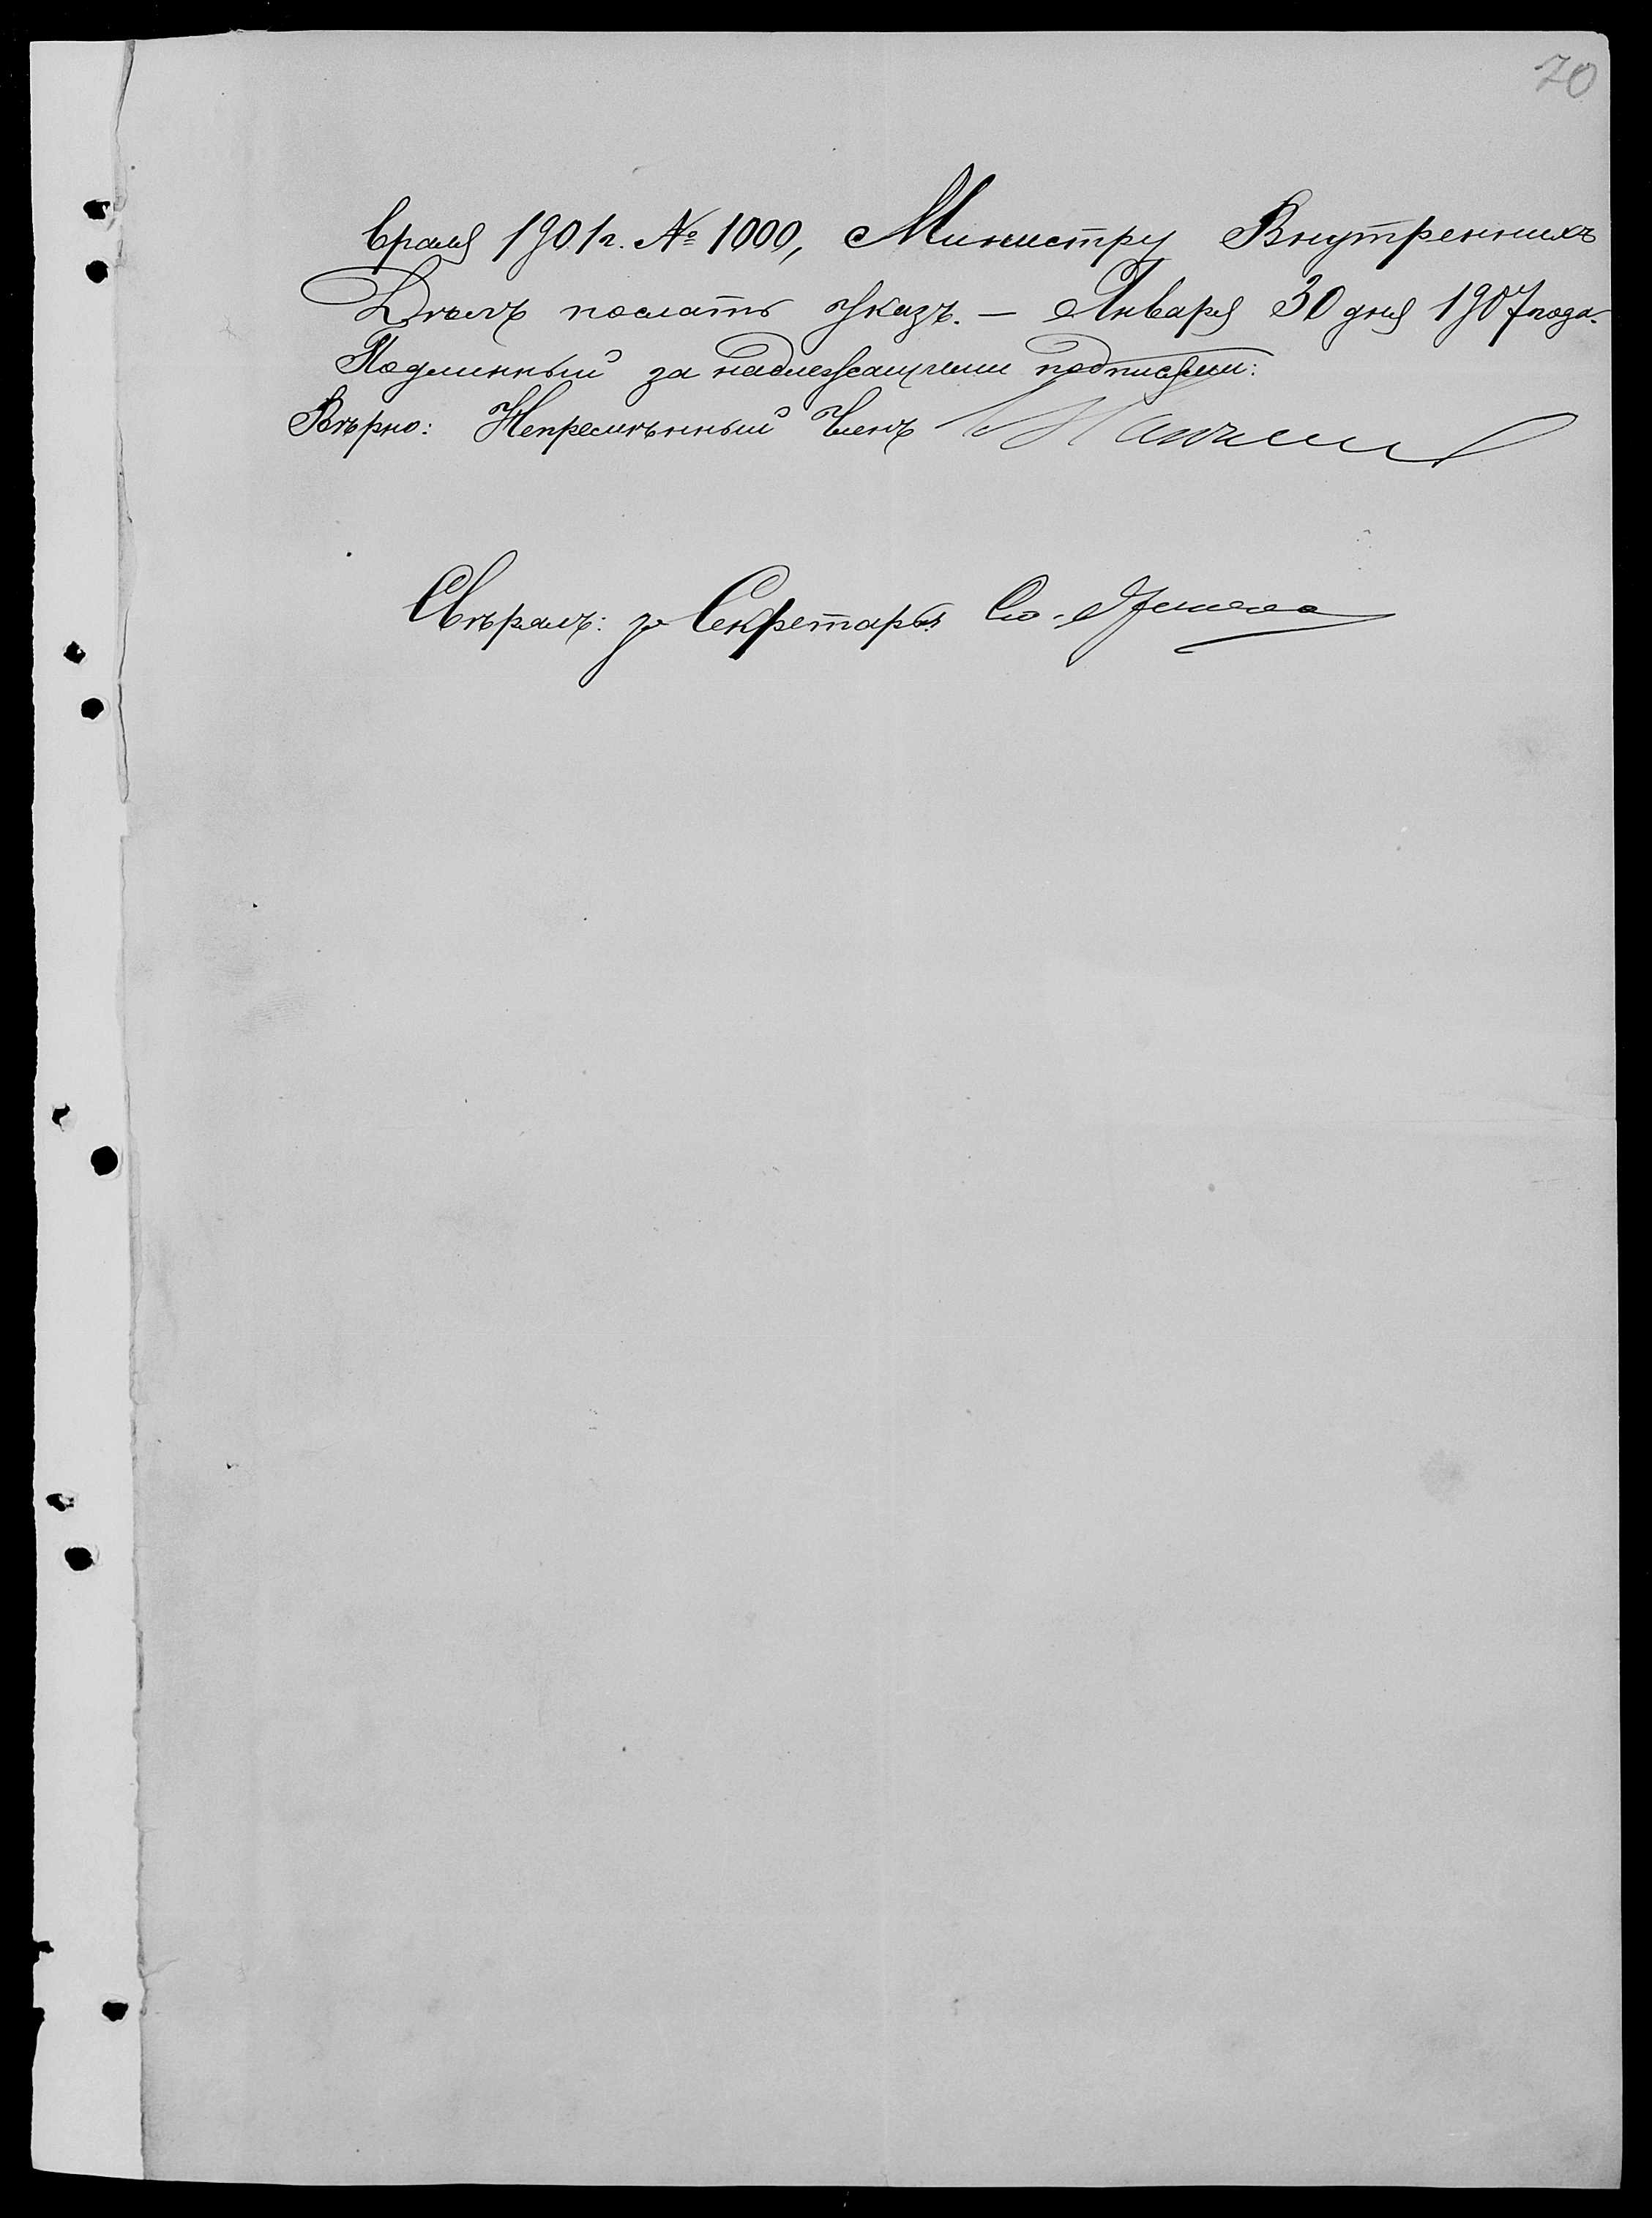 70
враля 1901г. № 1000, Министру Внутреннихъ
Дѣлъ послать Указъ. — Января 30 дня 1907 года.
Подлинный за надлежащими подписями:
Вѣрно: Непремѣнный Членъ
Свѣрялъ: за Секретаря